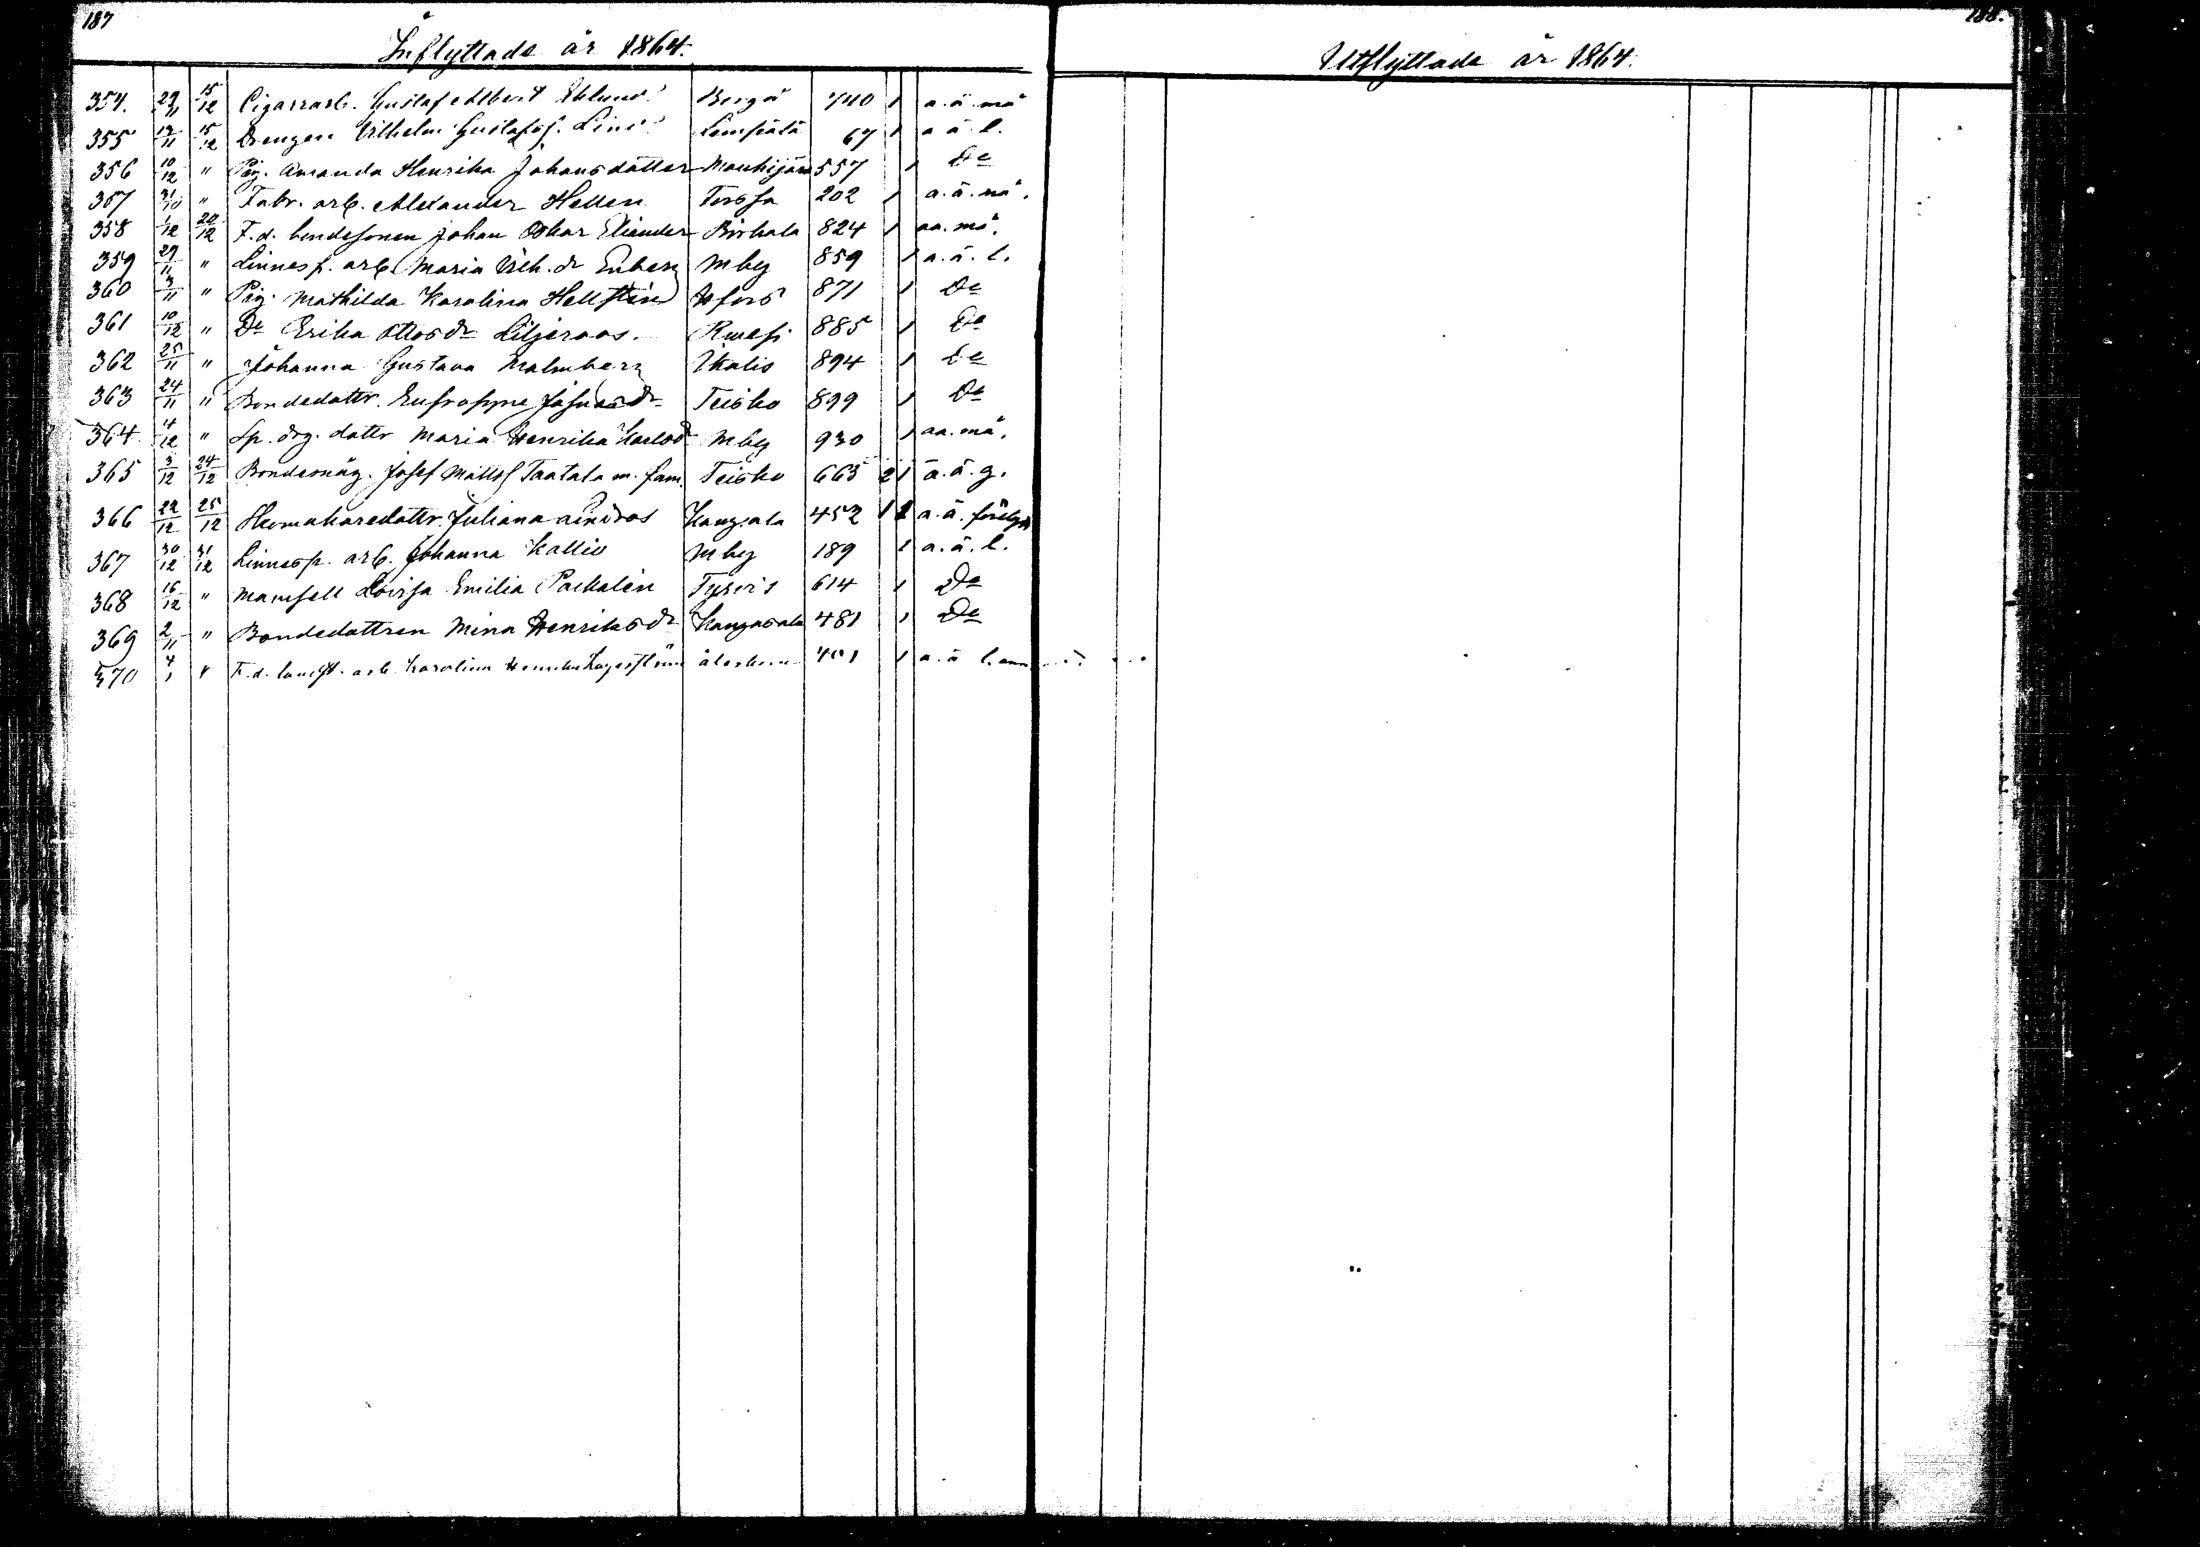 187
Inflyttade år 1864.
354. 29/11 15/12 Cigarrarb. Gustaf Albert Eklund Borgå 740 1 a.ä. må
355 12/11 15/12 Drengen Vilhelm Gustafsf. Lind Lempälä 67 1 a ä. l.
356 10/12 " Pig. Amanda Henrika Johansdotter Mouhijärvi 557 1 Do
357 31/10 " Fabr. arb. Alexander Hellen Forssa 202 1 a.ä. må.
358 1/12 20/12 F.d. bondesonen Johan Oskar Eliander Birkala 824 1 aa. må.
359 29/11 " Linnesp. arb. Maria Vilh. dr Enberg Mby 859 1 a.ä. l.
360 3/11 " Pig. Mathilda Karolina Hellsten Hfors 871 1 Do
361 10/12 " Do Erika Ottosdr Liljeroos. Ruovesi 885 1 Do
362 25/11 " Johanna Gustava Malmberg Ikalis 894 1 Do
363 24/11 " Bondedottr. Eufrosyne Josuasdr Teisko 899 1 Do
364 4/12 " Sp. drg. dottr Maria Henrika Karlsdr Mby 930 1 aa. må.
365 3/12 24/12 Bondemåg. Josef Mattsf Taatala m. fam. Teisko 663 2 1 a.ä. g.
366 22/12 25/12 Skomakaredottr. Juliana Kangsala 452 1 1 a.ä.
367 30/12 31/12 Linnesp. arb. Johanna Kallio Mby 189 1 a.ä. l.
368 16/12 " Mamsell Lovisa Emilia Packalén Tyrvis 614 1 Do
369 2/11 " Bondedottren Mina Henriksdr Kangasala 481 1 Do
370 4/1 " F.d. arb. Karolina Henrika Lagerström 401 1 a.ä l.
188.
Utflyttade år 1864.